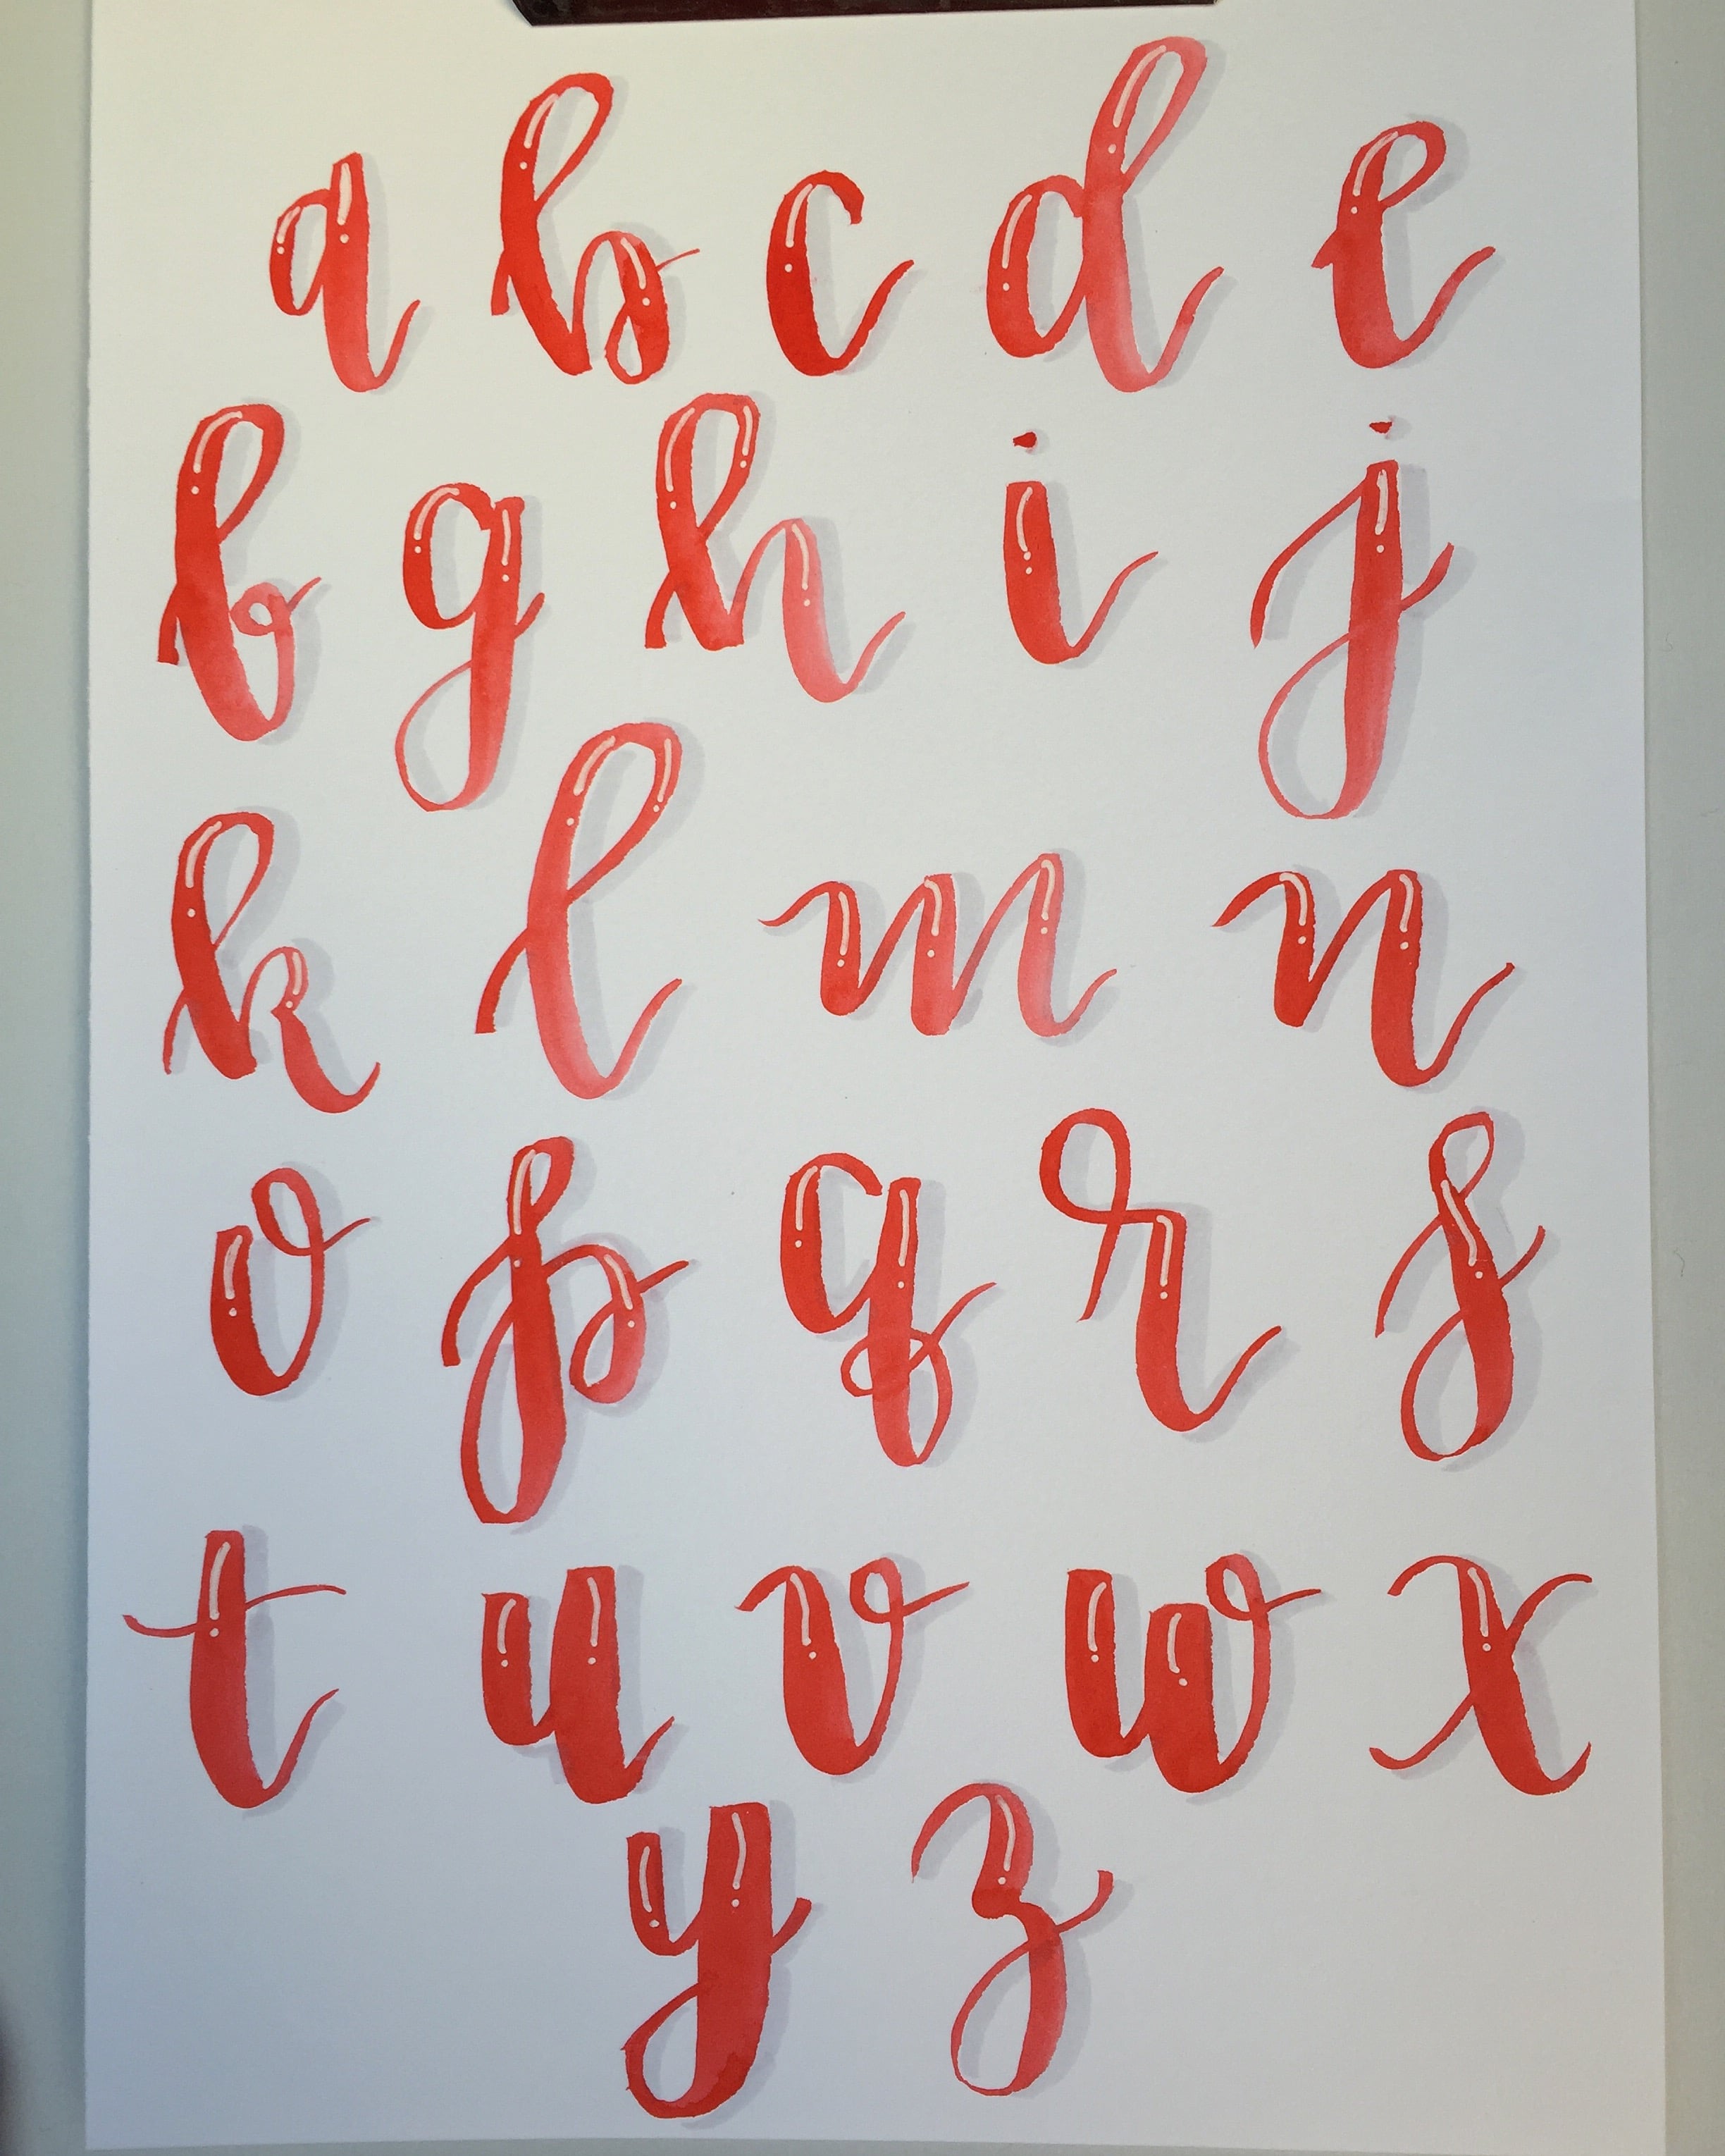 a b c d e
b g h i j
k l m n
o p q r s
t u v w x
y z